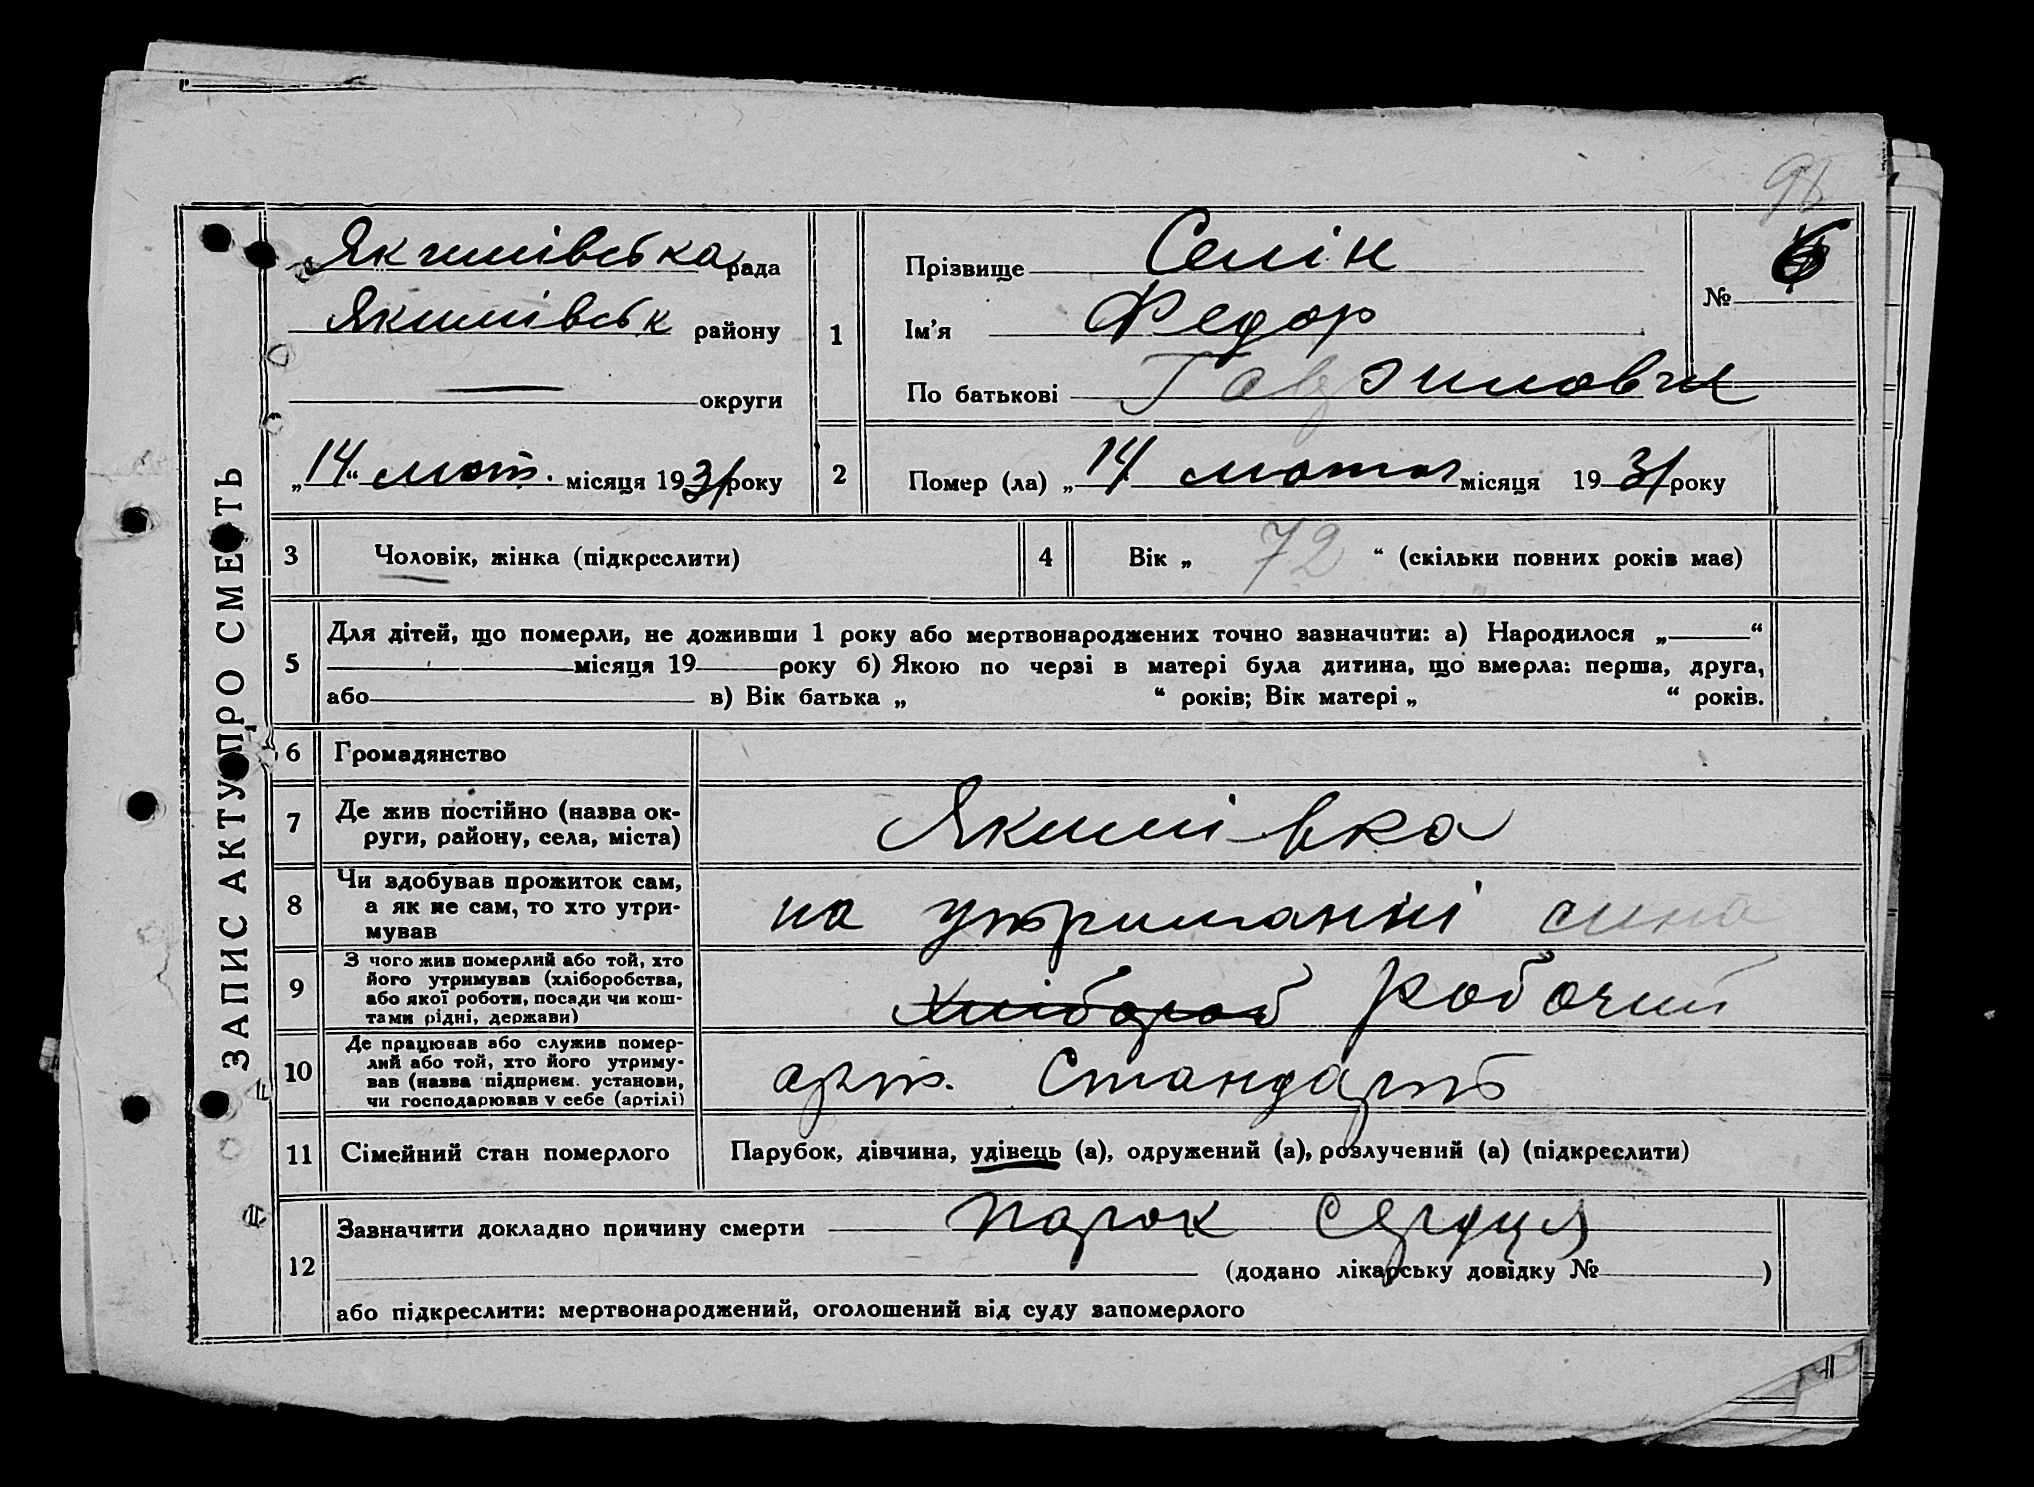 96
ЗАПИС АКТУ ПРО СМЕРТЬ
Якимівська рада
Якимівськ району
округи
„14“ лют. місяця 1931 року
1
Прізвище Селін
Ім'я Федор
По батькові
№ 6
2
Помер (ла) „14 лютого місяця 1931 року
3
Чоловік, жінка (підкреслити)
4
Вік „ 72 “ (скільки повних років має)
5
Для дітей, що померли, не доживши 1 року або мертвонароджених точно зазначити: а) Народилося „ “
місяця 19 року б) Якою по черзі в матері була дитина, що вмерла: перша, друга,
або в) Вік батька „ “ років; Вік матері „ “ років.
6
Громадянство
7
Де жив постійно (назва ок-
руги, району, села, міста)
Якимівка
8
Чи здобував прожиток сам,
а як не сам, то хто утри-
мував
на утриманні сина
9
З чого жив померлий або той, хто
його утримував (хліборобства,
або якої роботи, посади чи кош-
тами рідні, держави)
Хлібороб робочий
10
Де працював або служив помер-
лий або той, хто його утриму-
вав (назва підприєм. установи,
чи господарював у себе (артілі)
арт. Стандарт
11
Сімейний стан померлого
Парубок, дівчина, удівець (а), одружений (а), розлучений (а) (підкреслити)
12
Зазначити докладно причину смерти порок сердця
(додано лікарську довідку № )
або підкреслити: мертвонароджений, оголошений від суду запомерлого